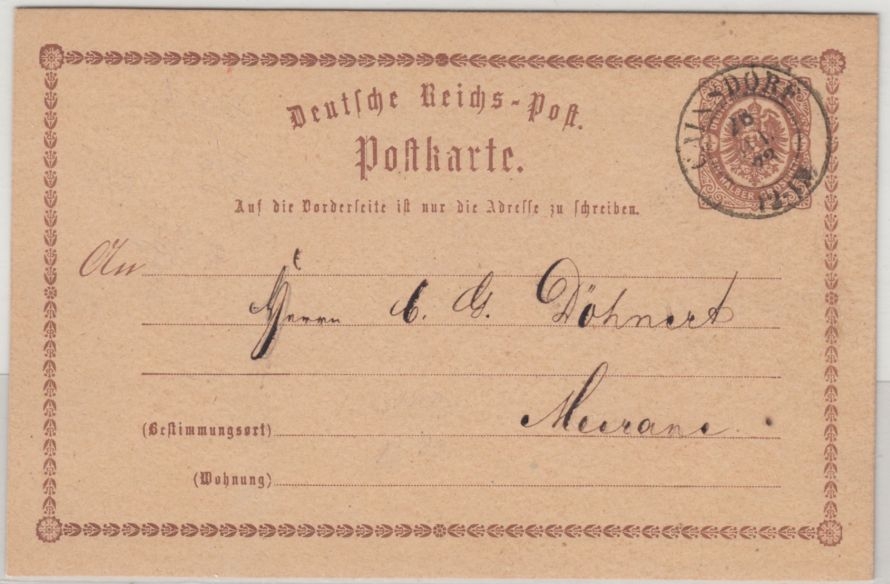 Deutsche Reichs-Post.
Postkarte.
Auf die Vorderseite ist nur die Adresse zu schreiben.
CAINSDORF
18
12-1N
An
Herrn C. G. Döhnert
Meerane.
(Bestimmungsort)
(Wohnung)